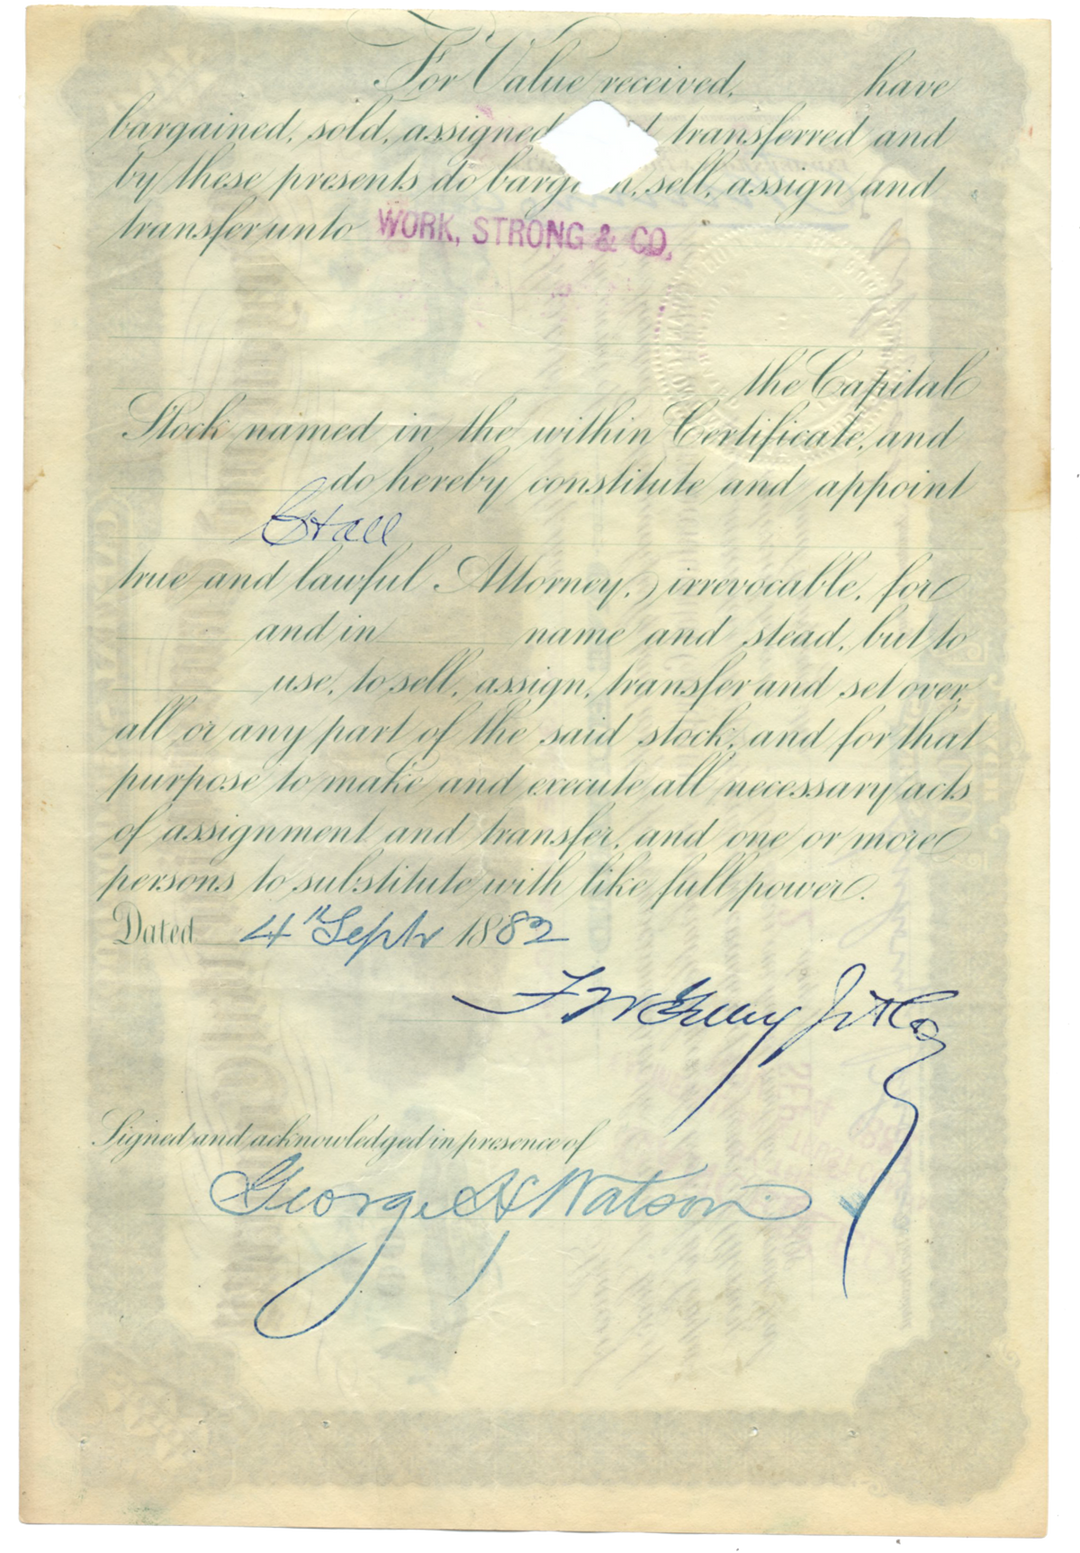 For Value received, have
bargained, sold, assigned transferred and
by these presents do barg n, sell, assign and
transfer unto WORK, STRONG & CO.
the Capital
Stock named in the within Certificate, and
do hereby constitute and appoint
true and lawful Attorney, irrevocable, for
and in name and stead, but to
use, to sell, assign, transfer and set over,
all or any part of the said stock, and for that
purpose to make and execute all necessary acts
of assignment and transfer, and one or more
persons to substitute with like full power.
Dated 4th Septr 1882
Signed and acknowledged in presence of
George A Watson